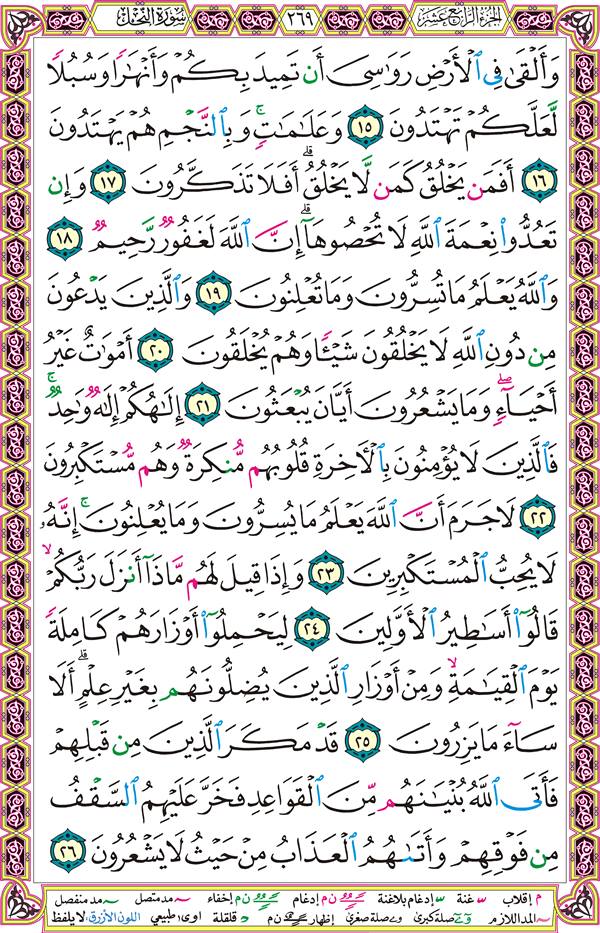 الجزء الرابع عشر ٢٦٩ سورة النحل
وَأَلْقَىٰ فِى ٱلْأَرْضِ رَوَٰسِىَ أَن تَمِيدَ بِكُمْ وَأَنْهَٰرًا وَسُبُلًا
لَّعَلَّكُمْ تَهْتَدُونَ ١٥ وَعَلَٰمَٰتٍ ۚ وَبِٱلنَّجْمِ هُمْ يَهْتَدُونَ
١٦ أَفَمَن يَخْلُقُ كَمَن لَّا يَخْلُقُ ۗ أَفَلَا تَذَكَّرُونَ ١٧ وَإِن
تَعُدُّوا۟ نِعْمَةَ ٱللَّهِ لَا تُحْصُوهَآ ۗ إِنَّ ٱللَّهَ لَغَفُورٌ رَّحِيمٌ ١٨
وَٱللَّهُ يَعْلَمُ مَا تُسِرُّونَ وَمَا تُعْلِنُونَ ١٩ وَٱلَّذِينَ يَدْعُونَ
مِن دُونِ ٱللَّهِ لَا يَخْلُقُونَ شَيْـًٔا وَهُمْ يُخْلَقُونَ ٢٠ أَمْوَٰتٌ غَيْرُ
أَحْيَآءٍ ۖ وَمَا يَشْعُرُونَ أَيَّانَ يُبْعَثُونَ ٢١ إِلَٰهُكُمْ إِلَٰهٌ وَٰحِدٌ ۚ
فَٱلَّذِينَ لَا يُؤْمِنُونَ بِٱلْـَٔاخِرَةِ قُلُوبُهُم مُّنكِرَةٌ وَهُم مُّسْتَكْبِرُونَ
٢٢ لَا جَرَمَ أَنَّ ٱللَّهَ يَعْلَمُ مَا يُسِرُّونَ وَمَا يُعْلِنُونَ ۚ إِنَّهُۥ
لَا يُحِبُّ ٱلْمُسْتَكْبِرِينَ ٢٣ وَإِذَا قِيلَ لَهُم مَّاذَآ أَنزَلَ رَبُّكُمْ ۙ
قَالُوٓا۟ أَسَٰطِيرُ ٱلْأَوَّلِينَ ٢٤ لِيَحْمِلُوٓا۟ أَوْزَارَهُمْ كَامِلَةً
يَوْمَ ٱلْقِيَٰمَةِ ۙ وَمِنْ أَوْزَارِ ٱلَّذِينَ يُضِلُّونَهُم بِغَيْرِ عِلْمٍ ۗ أَلَا
سَآءَ مَا يَزِرُونَ ٢٥ قَدْ مَكَرَ ٱلَّذِينَ مِن قَبْلِهِمْ
فَأَتَى ٱللَّهُ بُنْيَٰنَهُم مِّنَ ٱلْقَوَاعِدِ فَخَرَّ عَلَيْهِمُ ٱلسَّقْفُ
مِن فَوْقِهِمْ وَأَتَىٰهُمُ ٱلْعَذَابُ مِنْ حَيْثُ لَا يَشْعُرُونَ ٢٦
م إقلاب غنة إدغام بلاغنة ن م إدغام ن م إخفاء مد متصل مد منفصل
المد اللازم صلة كبرى صلة صغرى إظهار ن م قلقلة اوى طبيعي اللون الأزرق لا يلفظ